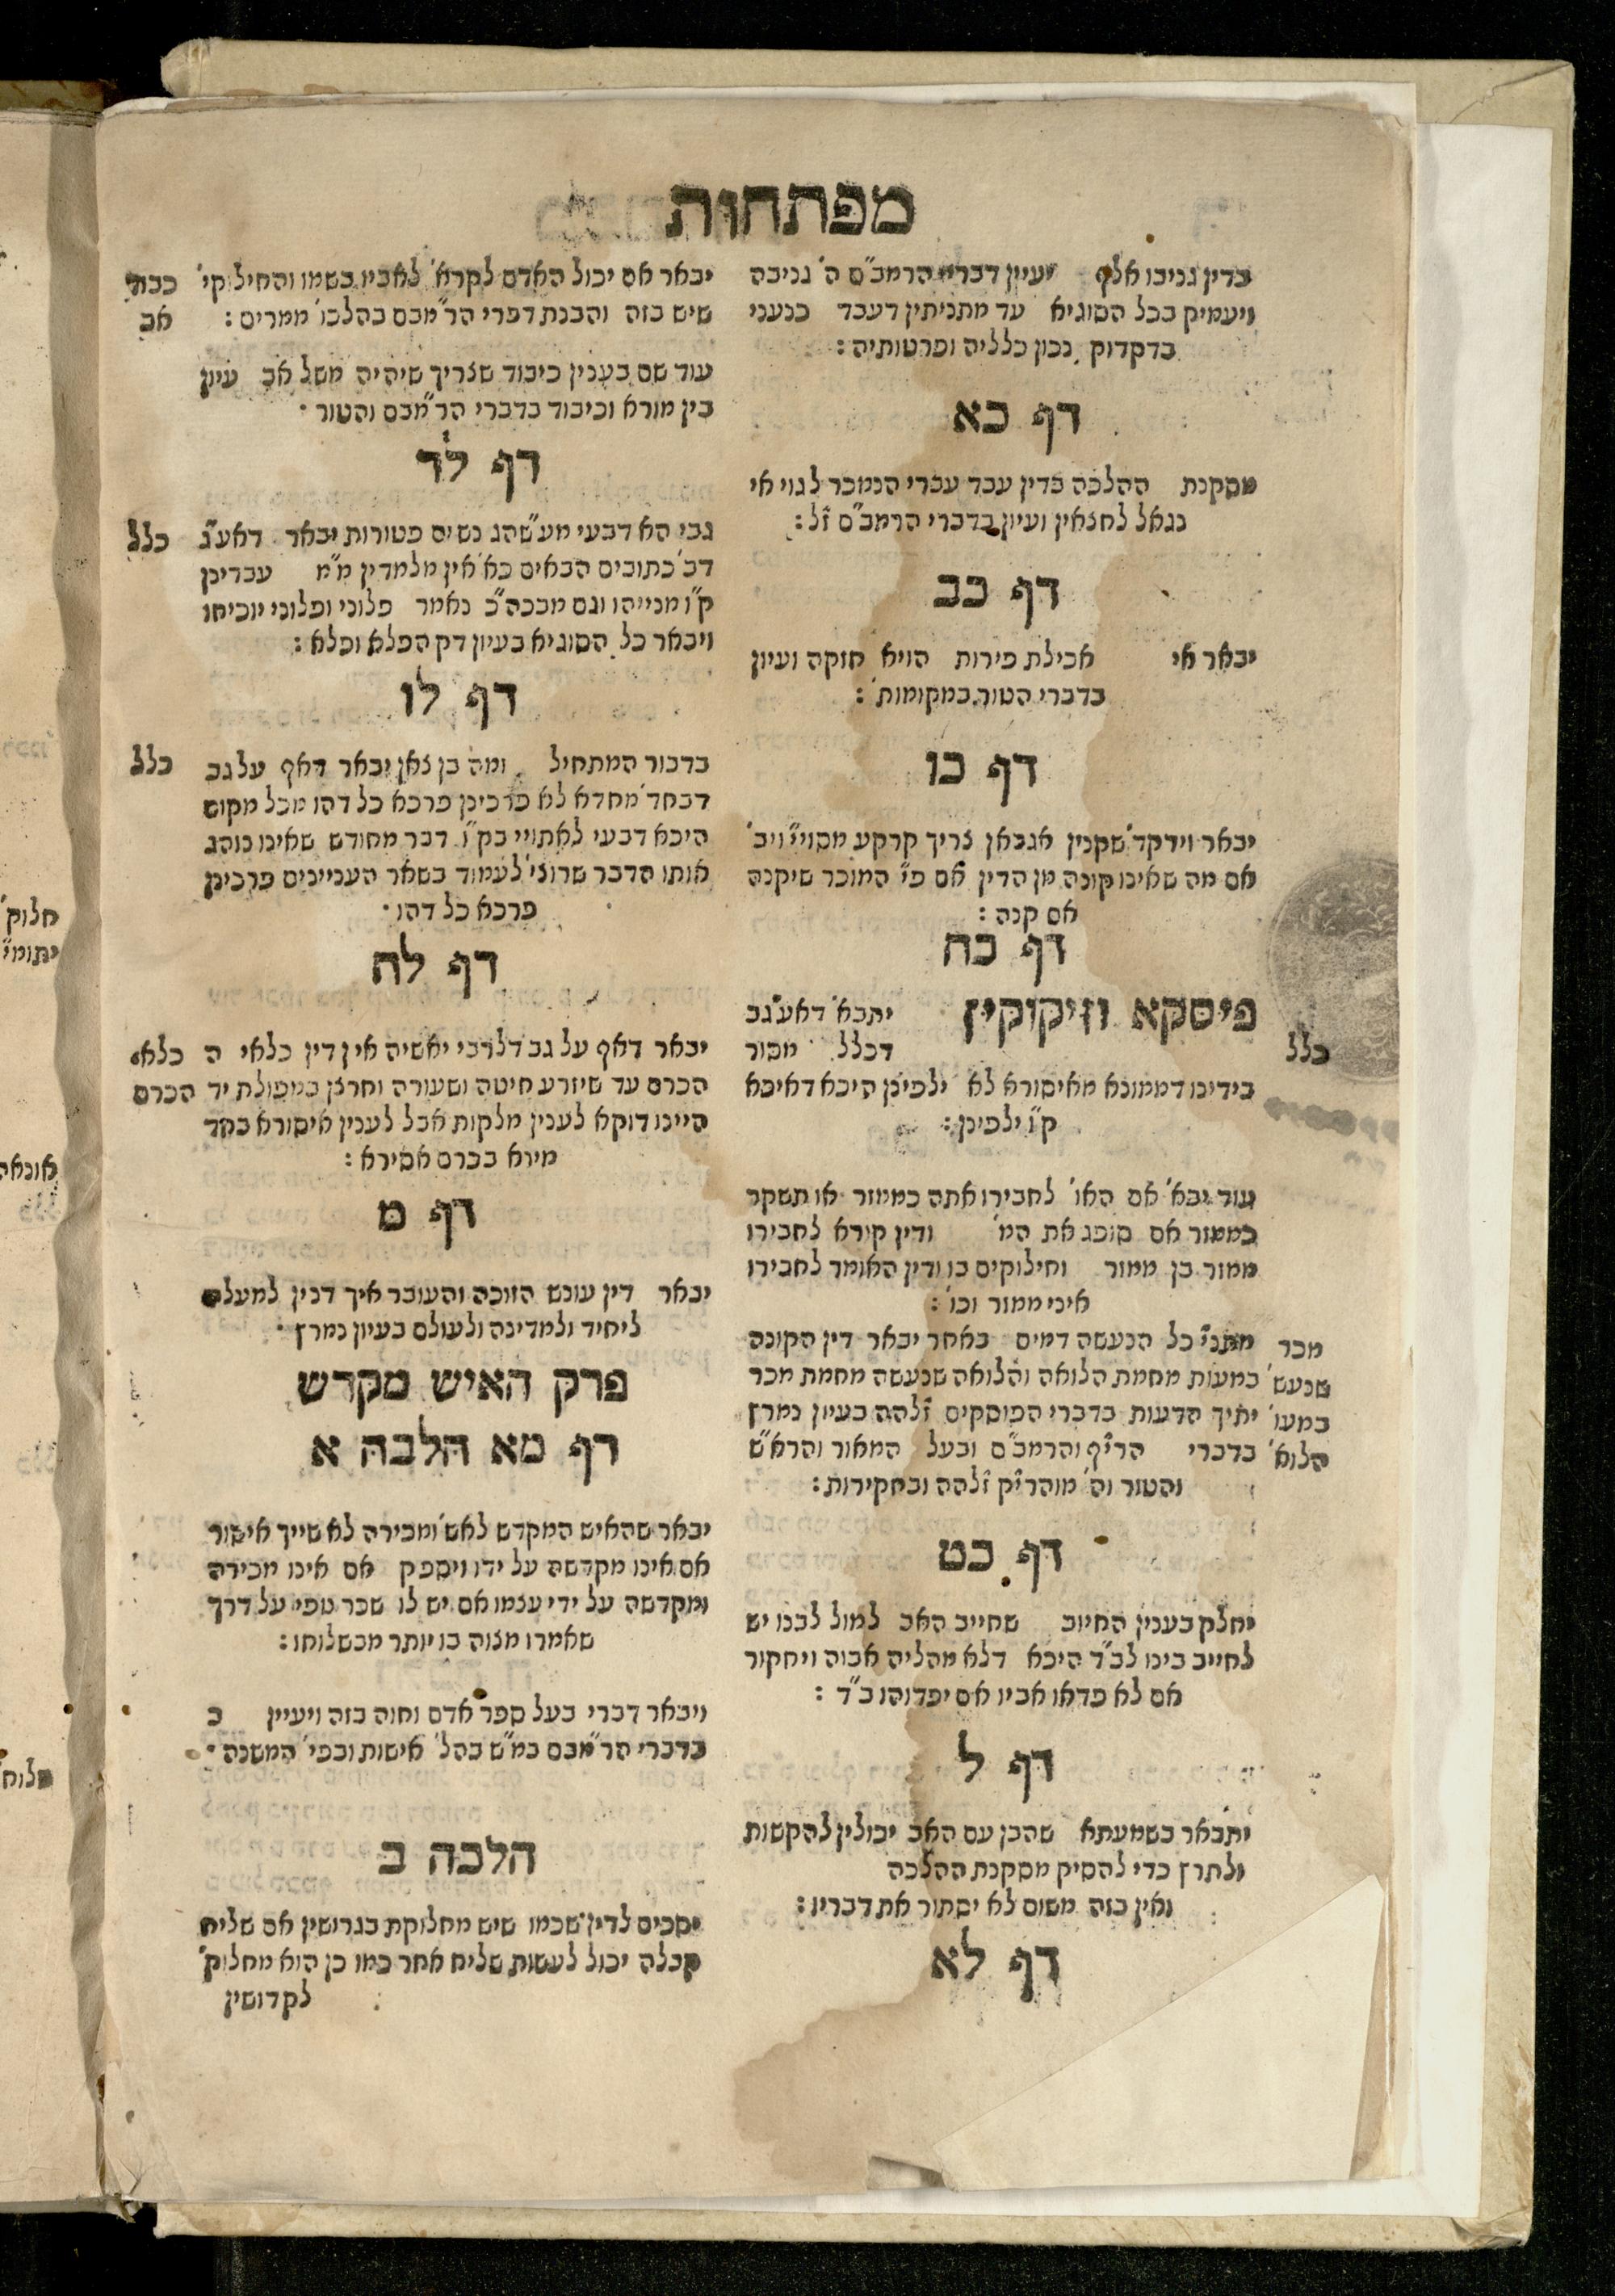 מפתחות
בדין גניבו אלף יעיין דברי הרמב"ם ה' גניבה
ויעמיק בכל הסוגיא עד מתניתין דעבד כנעני
בדקדוק נכון כלליה ופרטותיה:
דף כא
מסקנת ההלכה בדין עבד עברי הנמכר לגוי אי
נגאל לחצאין ועיון בדברי הרמב"ם ז"ל:
דף כב
יבאר אי אכילת פירות הויא חזקה ועיון
בדברי הטור במקומות:
דף כו
יבאר וידקד' שקנין אגבאן צריך קרקע מסויי' ויב'
אם מה שאינו קונה מן הדין אם פי' המוכר שיקנה
אם קנה:
דף כח
פיסקא וזיקוקין
יתבא' דאע"גב
כלל
דכלל מסור
בידינו דממונא מאיסורא לא ילפינן היכא דאיכא
ק"ו ילפינן:
עוד יבא' אם האו' לחבירו אתה כממזר או תשקר
כממזר אם סופג את המ' ודין קורא לחבירו
ממזר בן ממזר וחילוקים בו ודין האומר לחבירו
איני ממזר וכו':
מכר
שנעש'
במעו'
הלוא'
מתני' כל הנעשה דמים באחר יבאר דין הקונה
במעות מחמת הלואה והלואה שנעשה מחמת מכר
יתיך הדעות בדברי הפוסקים ז"להה בעיון נמרץ
בדברי הרי"ף והרמב"ם ובעל המאור והרא"ש
והטור וה' מוהרי"ק ז"להה ובחקירות:
דף כט
יחלק בענין החיוב שחייב האב למול לבנו יש
לחייב בינו לב"ד היכא דלא מהליה אבוה ויחקור
אם לא פדאו אביו אם יפדוהו ב"ד:
דף ל
יתבאר בשמעתא שהבן עם האב יכולין להקשות
ולתרץ כדי להסיק מסקנת ההלכה
ואין בזה משום לא יסתור את דבריו:
דף לא
כבוד
אב
יבאר אם יכול האדם לקרא' לאביו בשמו והחילוקי'
שיש בזה והבנת דברי הר"מבם בהלכו' ממרים:
עוד שם בענין כיבוד שצריך שיהיה משל אב עיון
בין מורא וכיבוד בדברי הר"מבם והטור'
דף לד
כלל
גבי הא דבעי מע"שהג נשים פטורות יבאר דאע"ג
דב' כתובים הבאים כא' אין מלמדין מ"מ עבדינן
ק"ו מנייהו וגם מבכה"כ נאמר פלוני ופלוני יוכיחו
ויבאר כל הסוגיא בעיון דק הפלא ופלא:
דף לו
כלל
בדבור המתחיל ומה בן צאן יבאר דאף על גב
דבחד' מחדא לא פרכינן פרכא כל דהו מכל מקום
היכא דבעי לאתויי בק"ו דבר מחודש שאינו נוהג
אותו הדבר שרוצי' לעמוד בשאר העניינים פרכינן
פרכא כל דהו'
דף לח
כלאי
הכרם
יבאר דאף על גב דלרבי יאשיה אין דין כלאי ה
הכרם עד שיזרע חיטה ושעורה וחרצן במפולת יד
היינו דוקא לענין מלקות אבל לענין איסורא בחד
מירא בכרם אסירא:
דף מ
יבאר דין עונש הזוכה והעובר איך דנין למעלה
ליחיד ולמדינה ולעולם בעיון נמרץ'
פרק האיש מקדש
דף מא הלכה א
יבאר שהאיש המקדש לאש' ומכירה לא שייך איסור
אם אינו מקדשה על ידו ויספק אם אינו מכירה
ומקדשה על ידי עצמו אם יש לו שכר טפי על דרך
שאמרו מצוה בו יותר מבשלוחו:
ויבאר דברי בעל ספר אדם וחוה בזה ויעיין כ
בדברי הר"מבם במ"ש בהל' אישות ובפי' המשנה'
הלכה ב
יסכים לדין שכמו שיש מחלוקת בגרושין אם שליח
קבלה יכול לעשות שליח אחר כמו כן הוא מחלוק'
לקדושין
חלוק'
יתומי'
אונאה
כלל